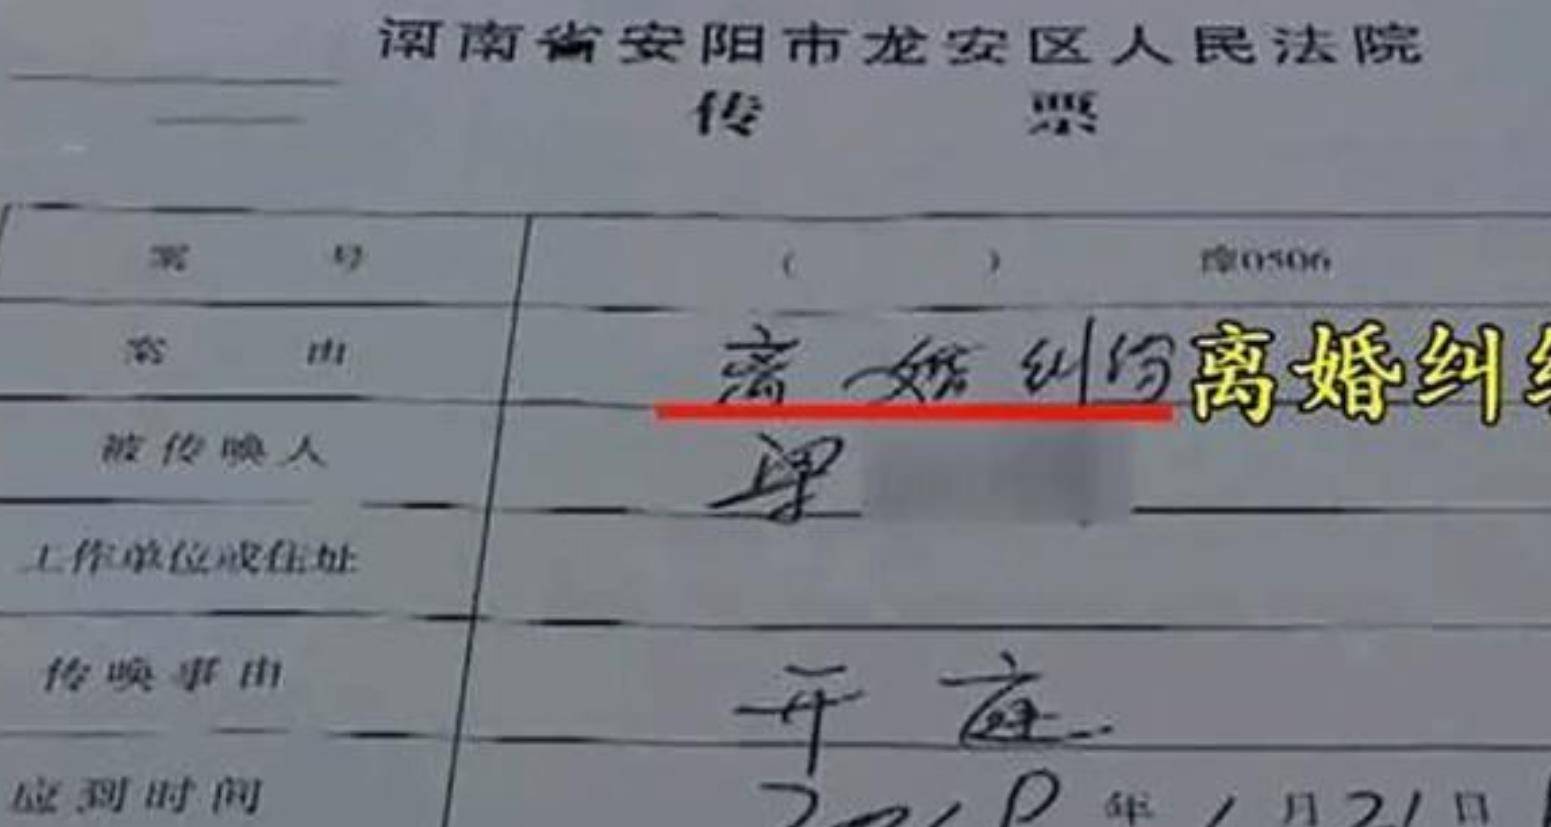 河南省安阳市龙安区人民法院
传 票
案 号 ( ) 豫0506
案 由 离婚纠纷 离婚纠纷
被传唤人 梁
工作单位或住址
传唤事由 开庭
应到时间 2018年1月21日